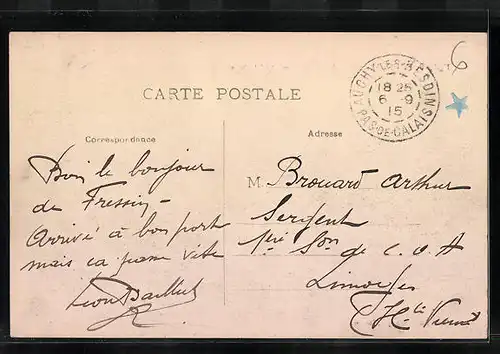 6
AUCHY-LES-HESDINS
18 25
6 -9
15
PAS-DE-CALAIS
CARTE POSTALE
Correspondance
Adresse
Bon le bonjour
de Fressin
Arrivé à bon port
mais ça passe vite
M. Brouard Arthur
Sergent
1ère Son de C.O.A
Limoges
Hte Vienne